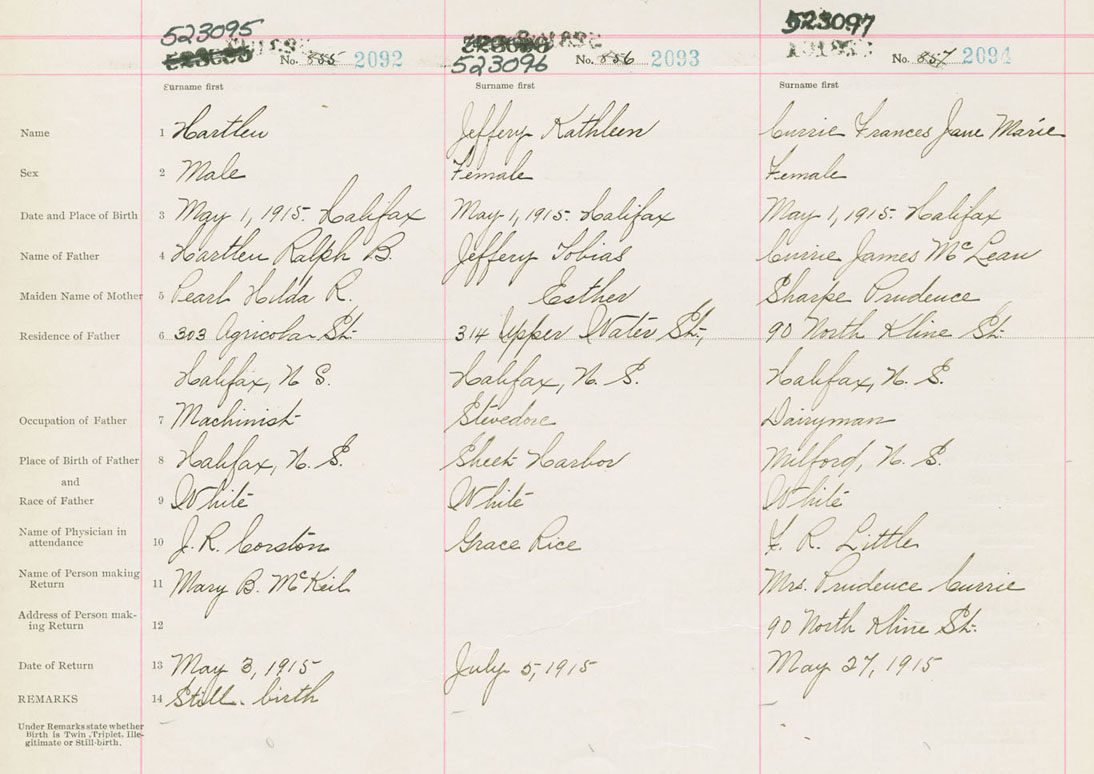 523095 523096 523097
No. 855 2092 No. 856 2093 No. 857 2094
Surname first Surname first Surname first
Name 1 Hartlen Jeffery Kathleen Currie Frances Jane Marie
Sex 2 Male Female Female
Date and Place of Birth 3 May 1, 1915. Halifax May 1, 1915. Halifax May 1, 1915. Halifax
Name of Father 4 Hartlen Ralph B. Jeffery Tobias Currie James McLean
Maiden Name of Mother 5 Pearl Hilda R. Esther Sharpe Prudence
Residence of Father 6 303 Agricola St. 314 Upper Water St., 90 North Kline St.
Halifax, N S. Halifax, N. S. Halifax, N. S.
Occupation of Father 7 Machinist Stevedore Dairyman
Place of Birth of Father 8 Halifax, N. S. Sheet Harbor Milford, N. S.
and
Race of Father 9 White White White
Name of Physician in
attendance 10 J. R. Corston Grace Rice F. R. Little
Name of Person making
Return 11 Mary B. McKeil Mrs. Prudence Currie
Address of Person mak-
ing Return 12 90 North Kline St.
Date of Return 13 May 3, 1915 July 5, 1915 May 27, 1915
REMARKS 14 Still-birth
Under Remarks state whether
Birth is Twin, Triplet, Ille-
gitimate or Still-birth.